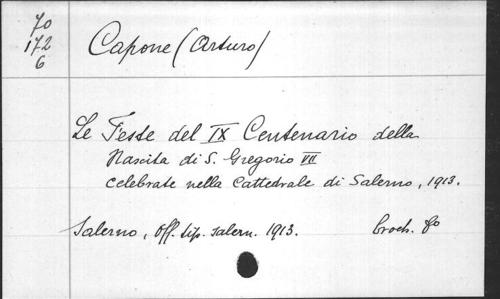 70
172
6
Capone (Arturo)
Le Feste del IX Centenario della
Nascita di S. Gregorio VII
celebrate nella Cattedrale di Salerno, 1913.
Salerno, Off. tip. salern. 1913. broch. 8o